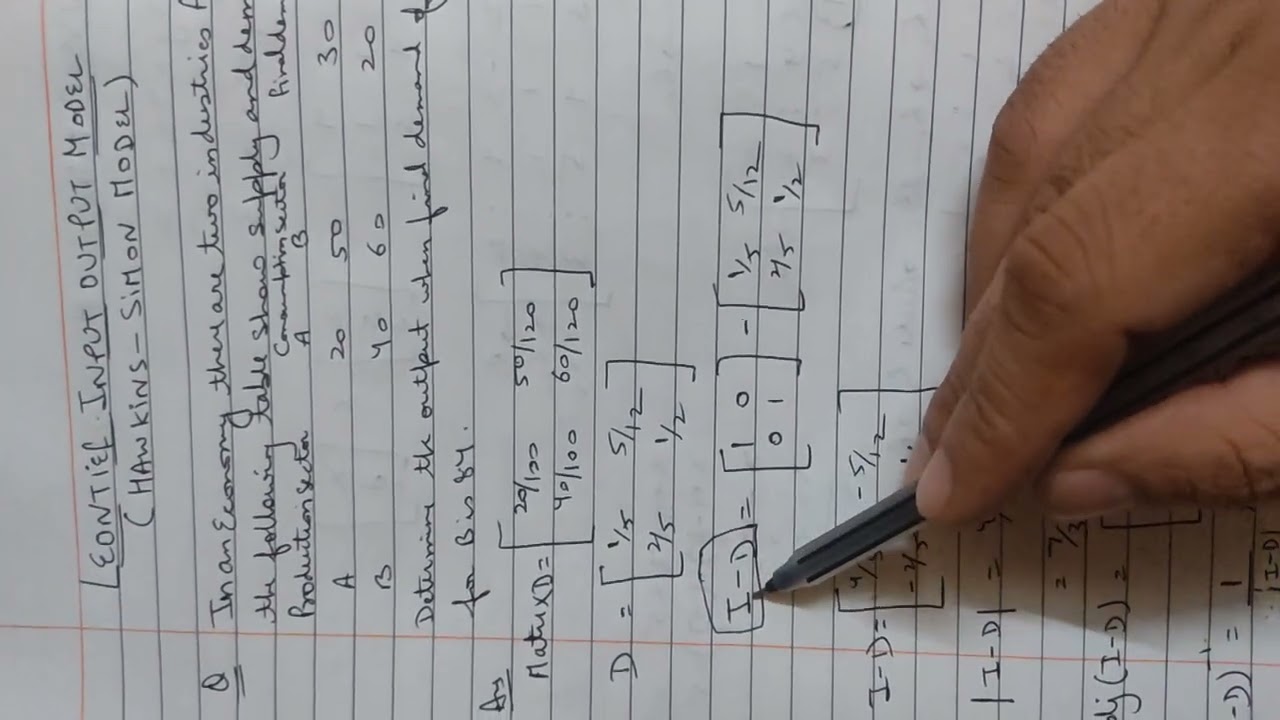 LEONTIEF INPUT OUTPUT MODEL
(HAWKINS-SIMON MODEL)
Q In an Economy there are two industries
the following table shows supply and dem
Production sector Consumption sector Final dem
A B
A 20 50 30
B 40 60 20
Determine the output when final demand
for B is 84.
Ans
Matrix D = [ 20/100 50/120
40/100 60/120 ]
D = [ 1/5 5/12
2/5 1/2 ]
(I-D) = [ 1 0 - [ 1/5 5/12
0 1 ] 2/5 1/2 ]
I-D = [ 4/5 -5/12
-2/5
|I-D| = 4/
= 7/3
dj (I-D) = [
-D) = 1
|I-D|